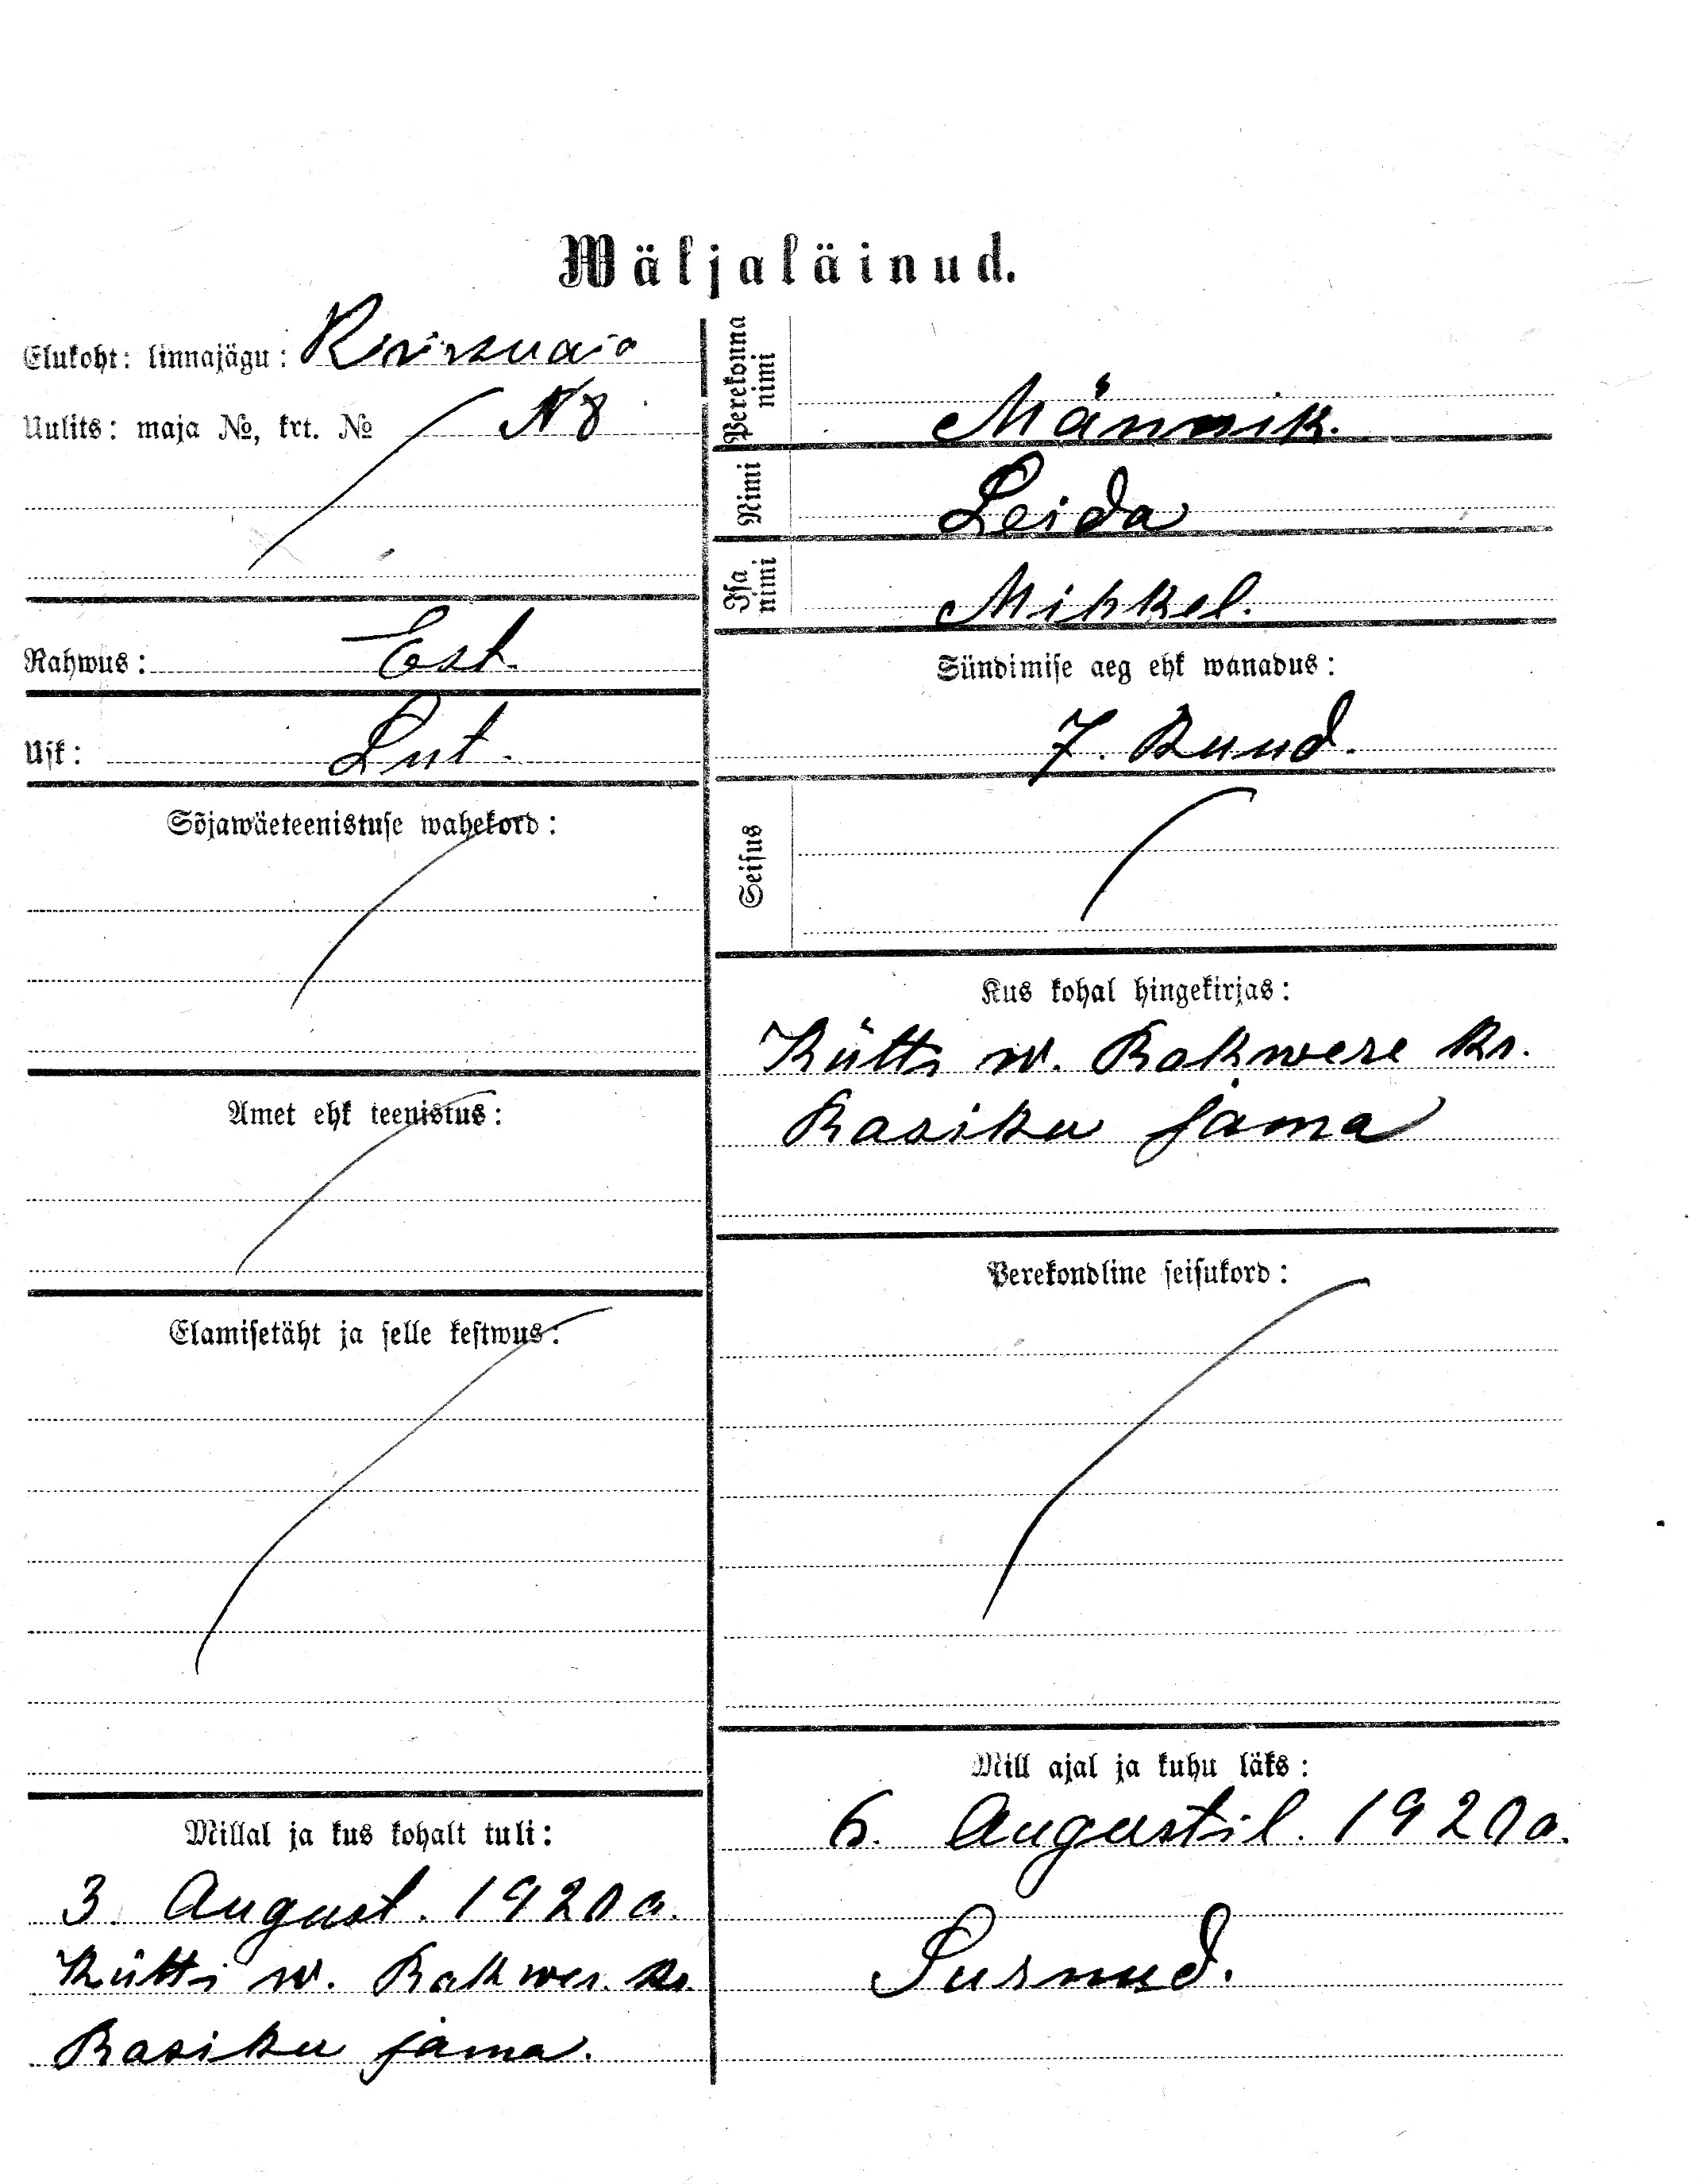 Wäljaläinud.
Elukoht: linnajägu:
Uulits: maja №, krt. № N 8
Rahwus: Est.
Usk: Lut.
Sõjawäeteenistuse wahekord:
Amet ehk teenistus:
Elamisetäht ja selle kestwus:
Millal ja kus kohalt tuli:
3. August. 1920 a.
Kütti w. Rakwer. kr.
Rasiku jama.
Perekonna nimi
Männik.
Nimi
Leida
Isa nimi
Mihkel.
Sündimise aeg ehk wanadus:
7. Kuud.
Seisus
Kus kohal hingekirjas:
Kütti w. Rakwere kr.
Rasiku jama
Perekondline seisukord:
Mill ajal ja kuhu läks:
6. Augustil. 1920 a.
Surnud.